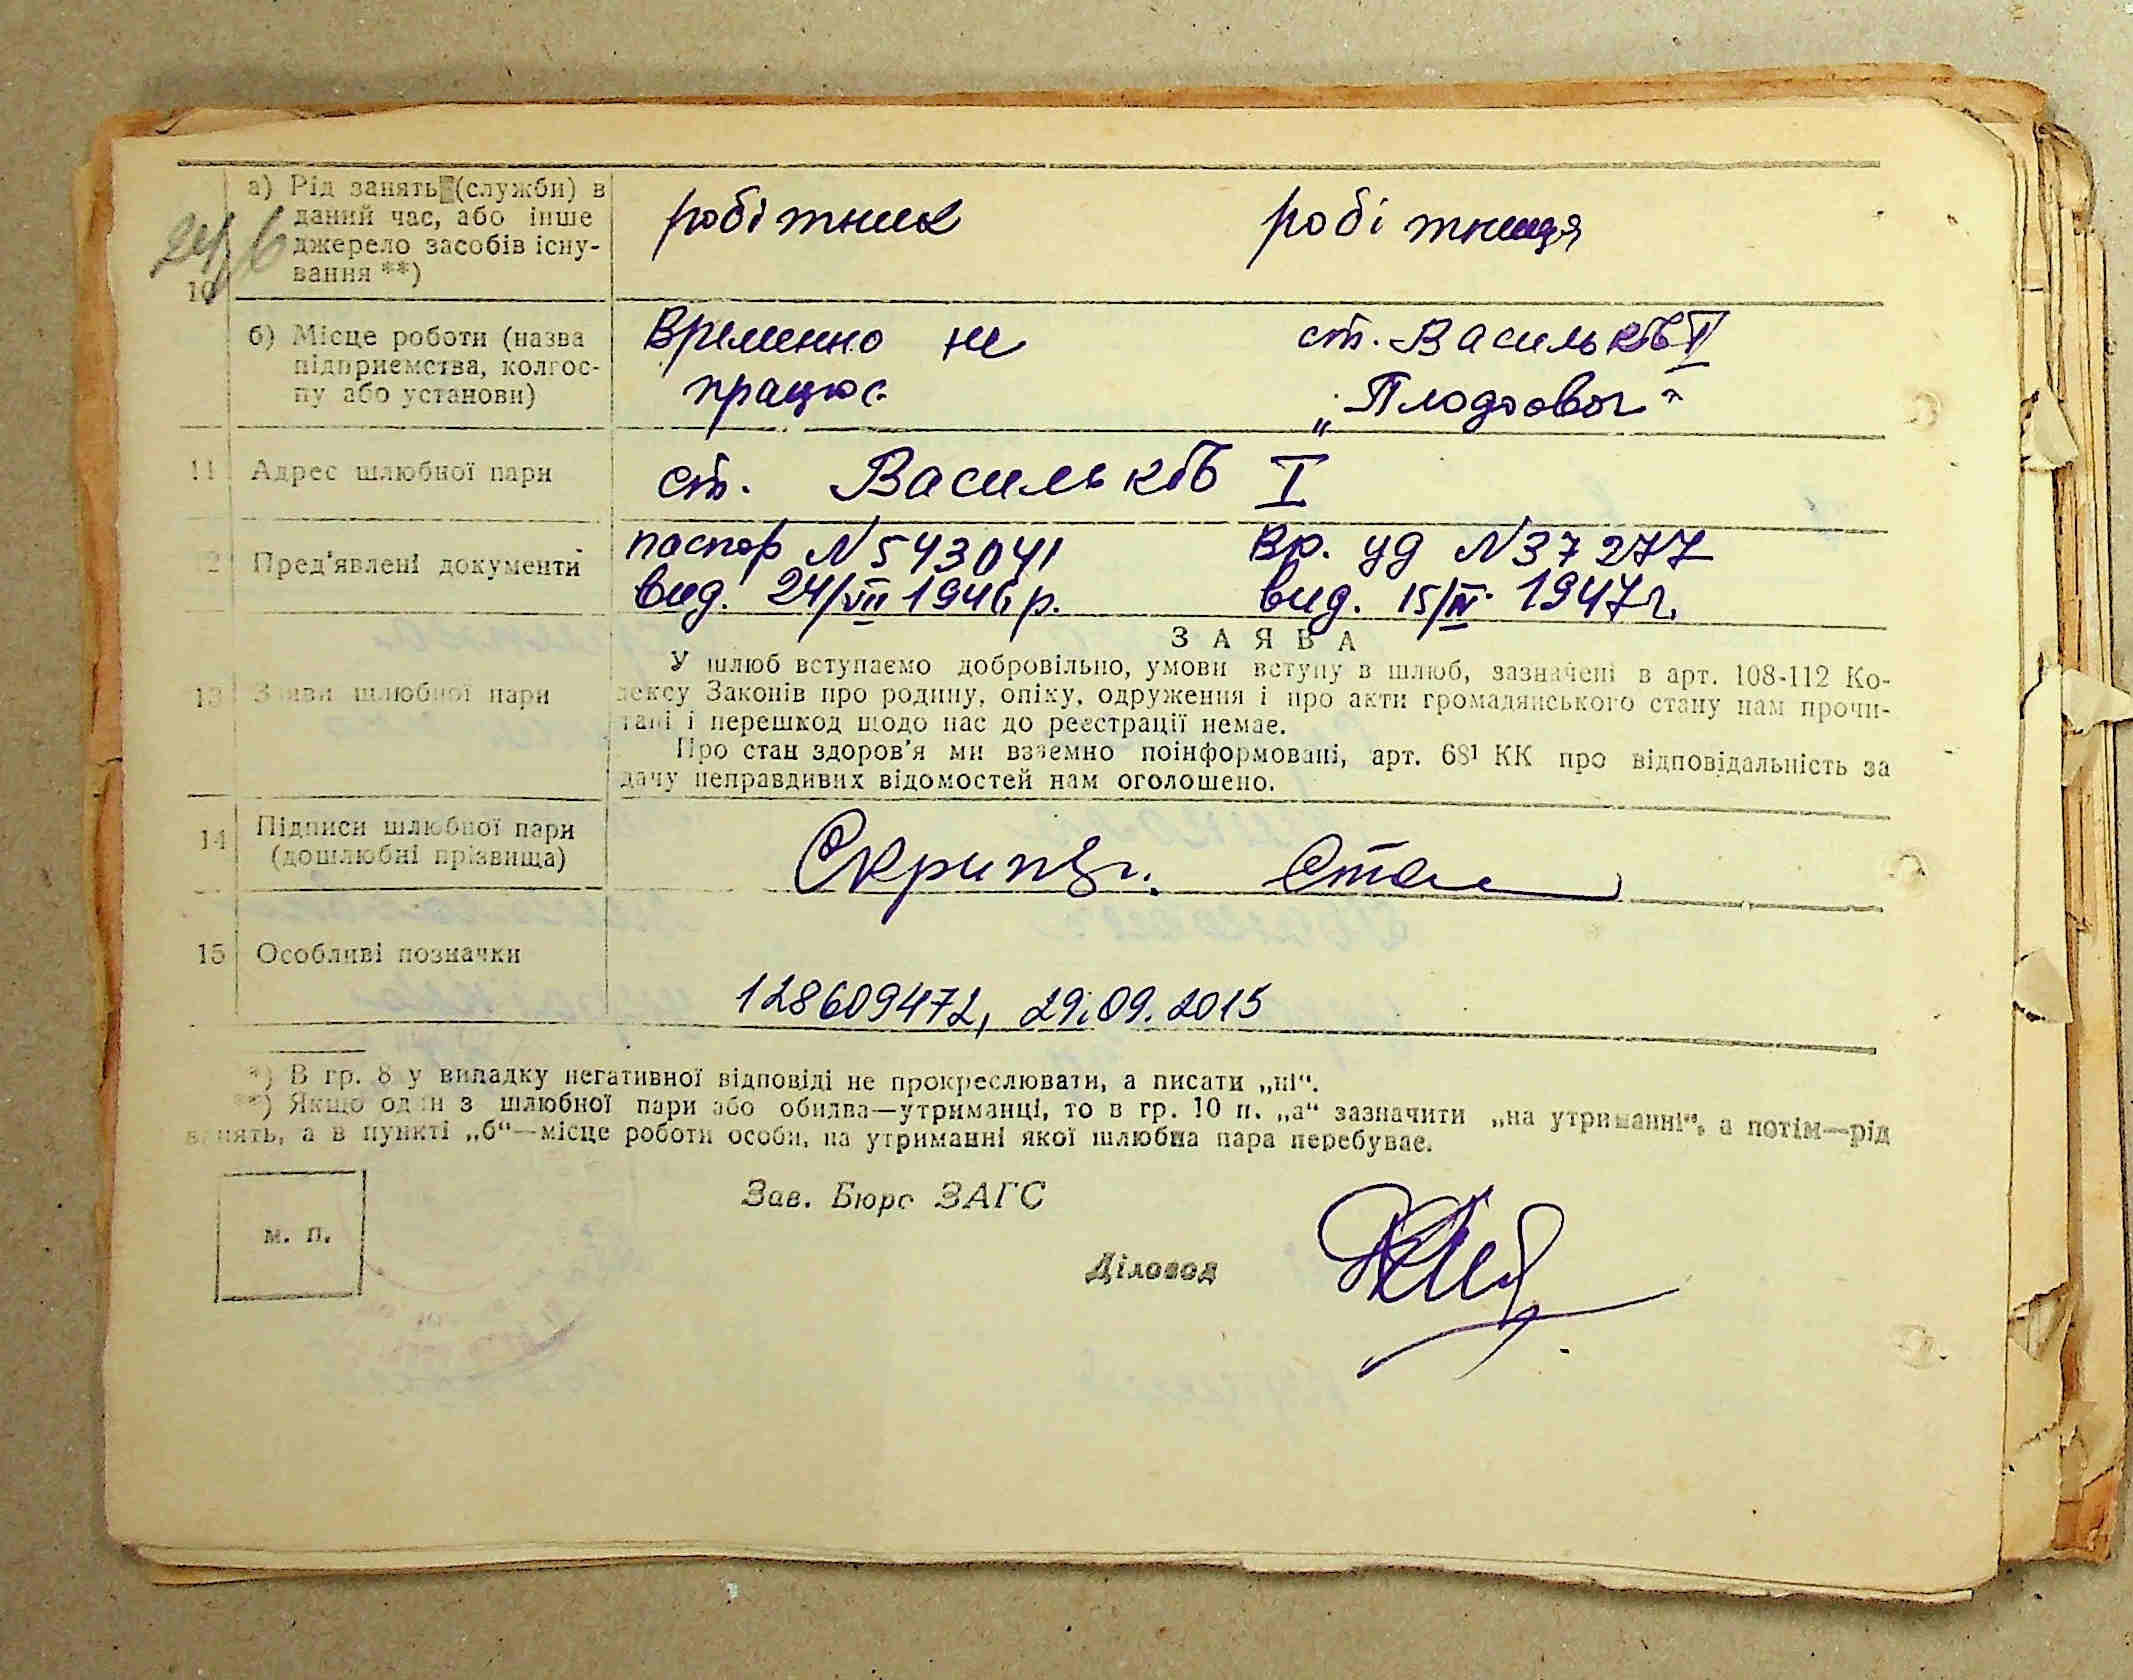 а) Рід занять (служби) в
даний час, або інше
джерело засобів існу-
вання **)
10
робітник
робітниця
б) Місце роботи (назва
підприємства, колгос-
пу або установи)
Временно не
працює
ст. Васильків II
„Плодоовоч"
11
Адрес шлюбної пари
ст. Васильків I
12
Пред'явлені документи
паспор N 543041
вид. 24/VII 1946 р.
Вр. уд N 37277
вид. 15/IV 1947 г.
13
Заяви шлюбної пари
ЗАЯВА
У шлюб вступаємо добровільно, умови вступу в шлюб, зазначені в арт. 108-112 Ко-
дексу Законів про родину, опіку, одруження і про акти громадянського стану нам прочи-
тані і перешкод щодо нас до реєстрації немає.
Про стан здоров'я ми взаємно поінформовані, арт. 68¹ КК про відповідальність за
дачу неправдивих відомостей нам оголошено.
14
Підписи шлюбної пари
(дошлюбні прізвища)
15
Особливі позначки
128609472, 29.09.2015
*) В гр. 8 у випадку негативної відповіді не прокреслювати, а писати „ні“.
**) Якщо один з шлюбної пари або обидва—утриманці, то в гр. 10 п. „а“ зазначити „на утриманні“, а потім—рід
занять, а в пункті „б“—місце роботи особи, на утриманні якої шлюбна пара перебуває.
м. п.
Зав. Бюро ЗАГС
Діловод